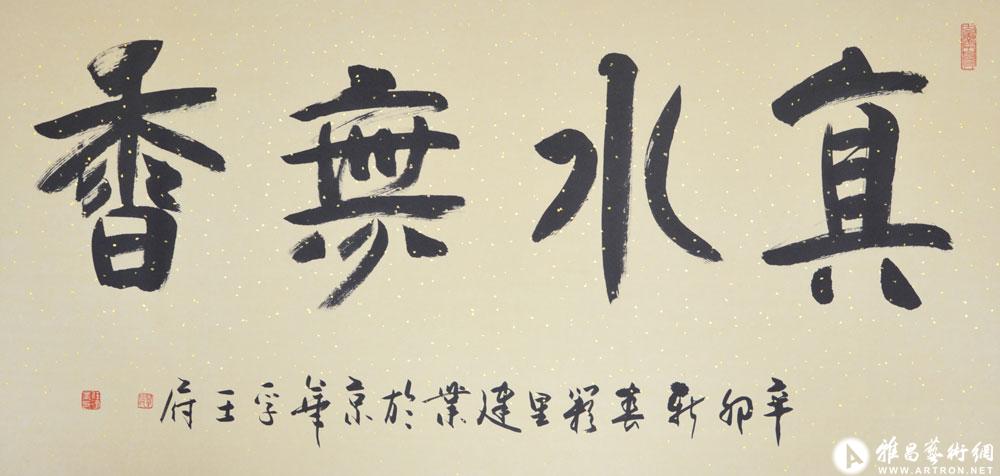 真水無香
辛卯新春里建業於京華孚王府
雅昌藝術網
WWW.ARTRON.NET